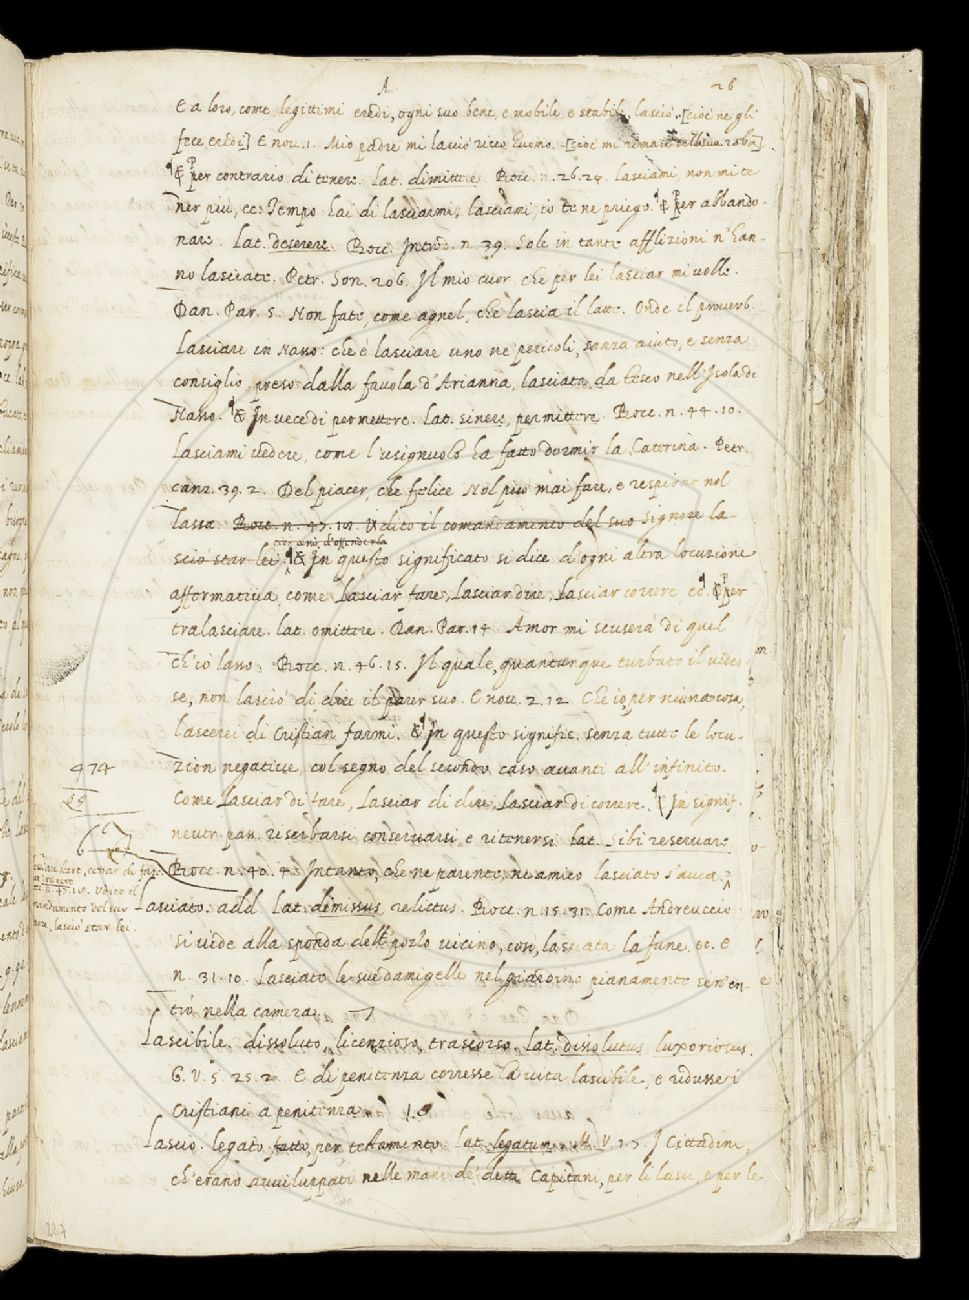 A
26
E a loro, come legittimi eredi, ogni suo bene, e mobile e stabile, lasciò. [cioè ne gli
fece eredi] E nov. 1. Mio padre mi lasciò ricco huomo. [cioè mi rimase della sua roba]
& per contrario di tenere. lat. dimittere. Bocc. n. 26. 24. lasciami, non mi te-
ner più, ec. Tempo hai di lasciarmi, lasciami, io te ne priego. & Per abbando-
nare. lat. deserere. Bocc. Introd. n. 39. Sole in tante afflizioni n'han-
no lasciate. Petr. Son. 206. Il mio cuor che per lei lasciar mi volle.
Dan. Par. 5. Non fate, come agnel, che lascia il latte. Onde il proverb.
Lasciare in Nasso: che è lasciare uno ne pericoli, sanza aiuto, e senza
consiglio, preso dalla favola d'Arianna, lasciata da teseo nell'Isola di
Nasso. & In vece di permettere. lat. sinere, permittere. Bocc. n. 44. 10.
Lasciami vedere, come l'usignuolo ha fatto dormir la Caterina. Petr.
canz. 39. 2. Del piacer, che felice Nol può mai fare, e respirar nol
lassa. Bocc. n. 45. 10. Udito il comandamento del suo signore la-
cioè andò, d'offenderla
sciò star lei & In questo significato si dice d'ogni altra locuzione
affermativa, come Lasciar fare, Lasciar dire, Lasciar correre, ec. & per
tralasciare. lat. omittere. Dan. Par. 14. Amor mi scuserà di quel
ch'io lasso. Bocc. n. 46. 15. Il quale, quantunque turbato il vedes-
se, non lasciò di dire il parer suo. E nov. 2. 12. Che io per niuna cosa
lascerei di Cristian farmi. & In questo signific. senza tutte le locu-
zion negative, col segno del secondo caso avanti all'infinito.
Come Lasciar di fare, Lasciar di dire, Lasciar di correre. & In signif.
neutr. pass. riserbarsi, conservarsi, e ritenersi. lat. sibi reservare
Bocc. n. 40. 4. Intanto, che ne parente, ne amico lasciato s'avea.
474
28
Lasciare stare, cessar di fare.
Bocc. n. 45. 10. Udito il
comandamento del suo
signore, lasciò star lei.
Lasciato. add. Lat. dimissus, relictus. Bocc. n. 15. 31. Come Andreuccio
si vide alla sponda dell pozzo vicino, così, lasciata la fune, ec. E
n. 31. 10. Lasciate le sue damigelle nel giardino pianamente se n'en-
trò nella camera.
Lascibile. dissoluto, licenzioso, trascorso. Lat. dissolutus, luxoriosus.
G. V. 5. 25. 2. E di penitenza corresse la vita lascibile, e ridusse i
Cristiani a penitenza.
Lascio. legato fatto per testamento. Lat. legatum. M. V. 1. 7. I Cittadini,
ch'erano avviluppati nelle mani de' detti Capitani, per li lasci, e per le